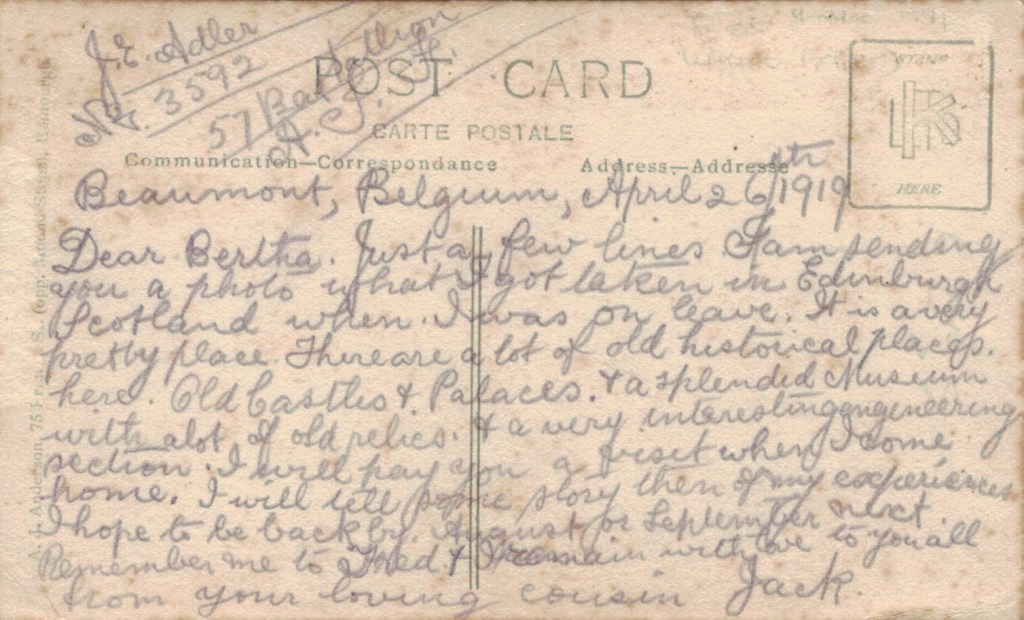 J.E. Adler
No. 3592
57 Battallion
A.I.F.
POST CARD
CARTE POSTALE
Communication—Correspondance Address—Addresse
STAMP
HERE
Beaumont, Belgium, April 26th/1919
Dear Bertha. Just a few lines I am sending
you a photo what I got taken in Edinburgh
Scotland when I was on leave. It is a very
pretty place. There are a lot of old historical places.
here. Old Castles & Palaces. & a splendid Museum
with alot of old relics. & a very interesting engineering
section. I will pay you a visit when I come
home. I will tell some story then of my experiences
I hope to be back by August or September next.
Remember me to Fred. & I remain with love to you all
from your loving cousin Jack.